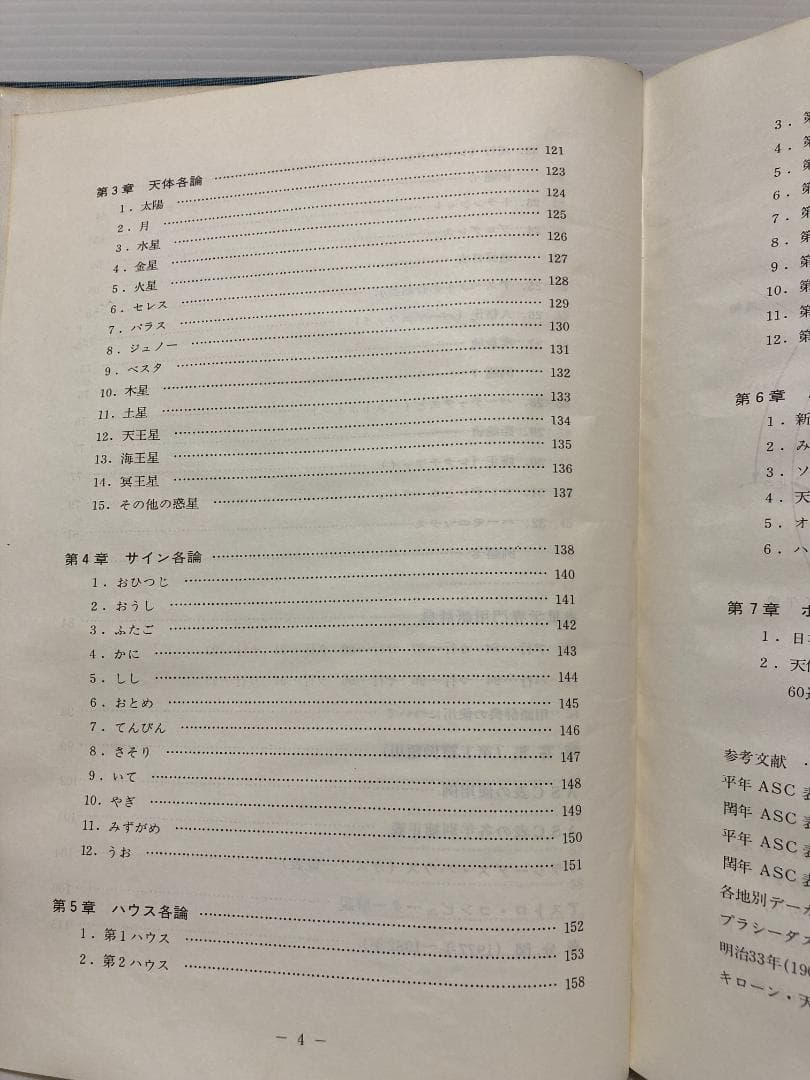 第3章 天体各論 ……… 121
1．太陽 ……… 123
2．月 ……… 124
3．水星 ……… 125
4．金星 ……… 126
5．火星 ……… 127
6．セレス ……… 128
7．パラス ……… 129
8．ジュノー ……… 130
9．ベスタ ……… 131
10．木星 ……… 132
11．土星 ……… 133
12．天王星 ……… 134
13．海王星 ……… 135
14．冥王星 ……… 136
15．その他の惑星 ……… 137
第4章 サイン各論 ……… 138
1．おひつじ ……… 140
2．おうし ……… 141
3．ふたご ……… 142
4．かに ……… 143
5．しし ……… 144
6．おとめ ……… 145
7．てんびん ……… 146
8．さそり ……… 147
9．いて ……… 148
10．やぎ ……… 149
11．みずがめ ……… 150
12．うお ……… 151
第5章 ハウス各論 ……… 152
1．第1ハウス ……… 153
2．第2ハウス ……… 158
－ 4 －
3．第
4．第
5．第
6．第
7．第
8．第
9．第
10．第
11．第
12．第
第6章
1．新
2．み
3．ソ
4．天
5．オ
6．ハ
第7章 ホ
1．日
2．天
60
参考文献
平年 ASC 表
閏年 ASC 表
平年 ASC 表
閏年 ASC 表
各地別デー
プラシーダス
明治33年(190
キローン・天